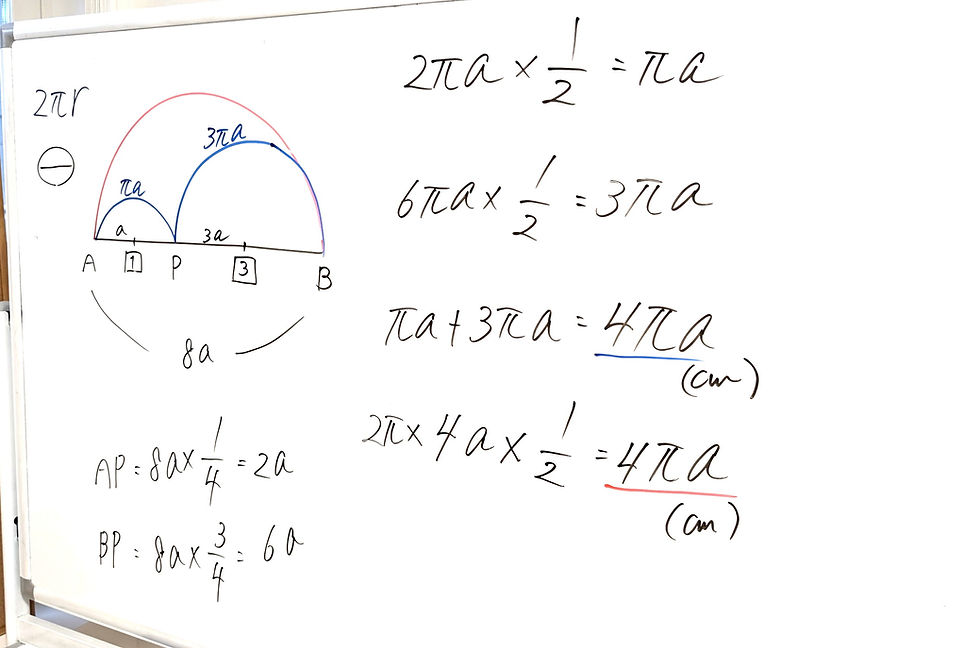 2πr
3πa
πa
a
3a
A 1 P 3 B
8a
AP = 8a × 1/4 = 2a
BP = 8a × 3/4 = 6a
2πa × 1/2 = πa
6πa × 1/2 = 3πa
πa + 3πa = 4πa
(cm)
2π × 4a × 1/2 = 4πa
(cm)